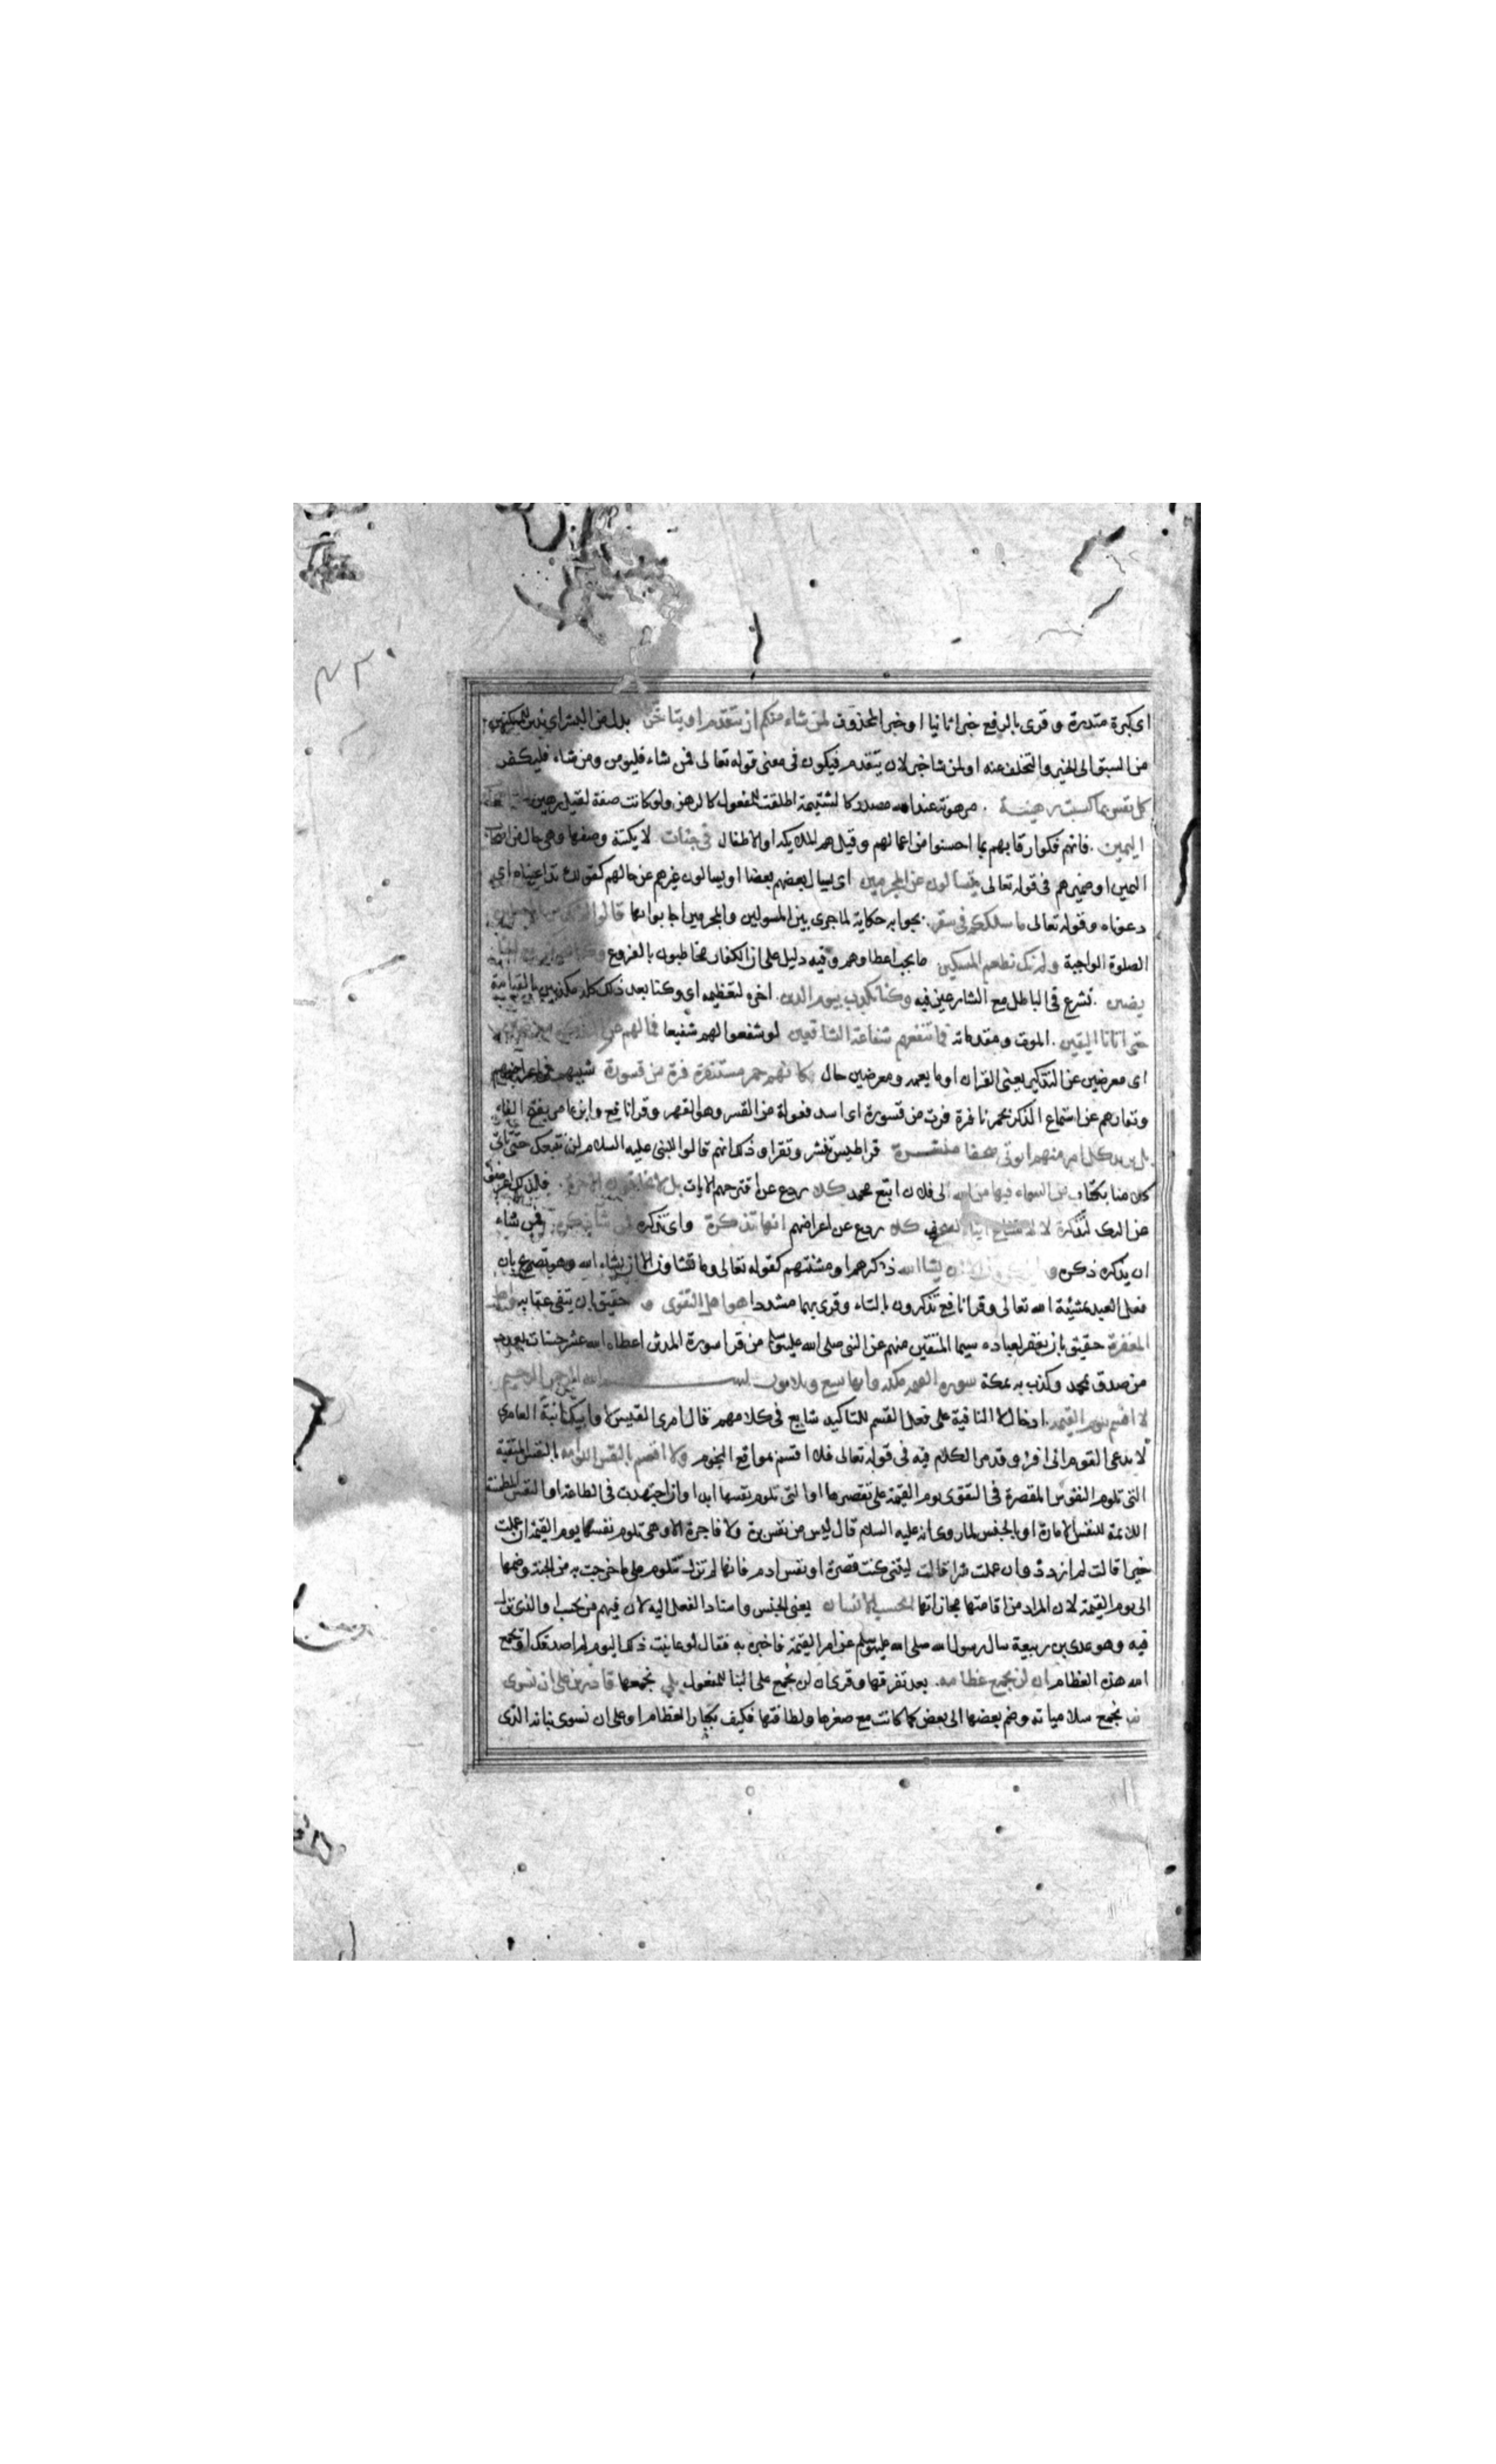 اى كبرة منذرة و قرى بالرفع خبرا ثانيا او خبر المحذوف لمن شاء منكم ان يتقدم او يتاخر بدل من البشر اى نذيرا للمتمكنين
من السبق الى الخير والتخلف عنه او لمن شا خبر لان يتقدم فيكون فى معنى قوله تعالى فمن شاء فليومن ومن شاء فليكفر
كل نفس بما كسبت رهينة مرهونة عند الله مصدر كا لشتيمة اطلقت للمفعول كالرهن ولو كانت صفة لقيل رهين
اليمين فانهم فكوا رقابهم بما احسنوا من اعمالهم وقيل هم الملئكة او الاطفال فى جنات لا يكتنه وصفها وهى حال من اصحاب
اليمين او ضميرهم فى قوله تعالى يتسالون عن المجرمين اى يسال بعضهم بعضا او يسالون غيرهم عن حالهم كقولك تداعيناه اى
دعوناه وقوله تعالى ما سلككم فى سقر بجوابه حكاية لما جرى بين المسولين والمجرمين اجابوا بما قالوا
الصلوة الواجبة ولم نك نطعم المسكين ما يجب اعطاوهم وفيه دليل على ان الكفار مخاطبون بالفروع
يضين نشرع فى الباطل مع الشارعين فيه وكنا نكذب بيوم الدين اخره لتعظيمه اى وكنا بعد ذلك كله مكذبين بالقيامة
حتى اتانا اليقين الموت ومقدماته فما تنفعهم شفاعة الشافعين لو شفعوا لهم شفيعا فما لهم عن
اى معرضين عن التذكير يعنى القران او ما يعمه ومعرضين حال كانهم حمر مستنفرة فرت من قسورة شبههم فى اعراضهم
ونفارهم عن استماع الذكر بحمر نافرة فرت من قسورة اى اسد فعولة من القسر وهو القهر وقرا نافع وابن عامر بفتح الفاء
بل يريد كل امر منهم ان يوتى صحفا منشرة قراطيس تنشر وتقرا وذلك انهم قالوا للنبى عليه السلام لن نتبعك حتى تاتى
كلا منا بكتاب من السماء فيها من الله الى فلان اتبع محمد كلا ردع عن اقتراحهم الايات بل لا يخافون الاخرة فلذلك اعرضوا
عن التذكرة لا لامتناع ايتاء الصحف كلا ردع عن اعراضهم انها تذكرة واى تذكرة فمن شاء ذكره فمن شاء
ان يذكره ذكره وما يذكرون الا ان يشا الله ذكرهم او مشيتهم كقوله تعالى وما تشاون الا ان يشاء الله وهو تصريح بان
فعل العبد بمشيئة الله تعالى وقرا نافع تذكرون بالتاء وقرى بهما مشددا هو اهل التقوى حقيق بان يتقى عقابه واهل
المغفرة حقيق بان يغفر لعباده سيما المتقين منهم عن النبى صلى الله عليه وسلم من قرا سورة المدثر اعطاه الله عشر حسنات بعدد
من صدق بمحمد وكذب به بمكة سورة القيمة مكية وايها تسع وثلاثون بسم الله الرحمن الرحيم
لا اقسم بيوم القيمة ادخال لا النافية على فعل القسم للتاكيد شايع فى كلامهم قال امرى القيس لا وابيك ابنة العامرى
لا يدعى القوم انى افر وقد مر الكلام فيه فى قوله تعالى فلا اقسم بمواقع النجوم ولا اقسم بالنفس اللوامة بالنفس المتقية
التى تلوم النفوس المقصرة فى التقوى يوم القيمة على تقصيرها او التى تلوم نفسها ابدا وان اجتهدت فى الطاعة او النفس المطمئنة
اللائمة للنفس الامارة او بالجنس لما روى انه عليه السلام قال ليس من نفس برة ولا فاجرة الا وهى تلوم نفسها يوم القيمة ان عملت
خيرا قالت لم ازدد وان عملت شرا قالت ليتنى كنت قصرة او نفس ادم فانها لم تزل تتلوم على ما خرجت به من الجنة وضمها
الى يوم القيمة لان المراد من اقامتها مجازاتها ايحسب الانسان يعنى الجنس واسناد الفعل اليه لان فيهم من يحسب او الذى نزل
فيه وهو عدى بن ربيعة سال رسول الله صلى الله عليه وسلم عن امر القيمة فاخبره به فقال لو عاينت ذلك اليوم لم اصدقك او يجمع
الله هذه العظام ان لن نجمع عظامه بعد تفرقها وقرى ان لن تجمع على البنا للمفعول بلى نجمعها قادرين على ان نسوى
نجمع سلامياته وضم بعضها الى بعض كما كانت مع صغرها ولطافتها فكيف بكبار العظام او على ان نسوى بنانه الذى